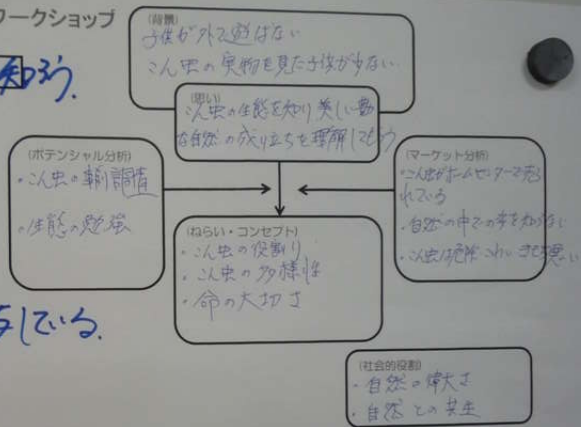 ワークショップ
知ろう.
(背景)
子供が外で遊ばない
こん虫の実物を見た子供が少ない
(思い)
こん虫の生態を知り 美しい
自然の成り立ちを理解してもらう
(ポテンシャル分析)
・こん虫の事前調査
・生態の勉強
(マーケット分析)
・こん虫がホームセンターで売ら
れている
・自然の中での事を知らない
・こん虫は危険 こわい
(ねらい・コンセプト)
・こん虫の役割り
・こん虫の多様性
・命の大切さ
している.
(社会的役割)
・自然の偉大さ
・自然との共生